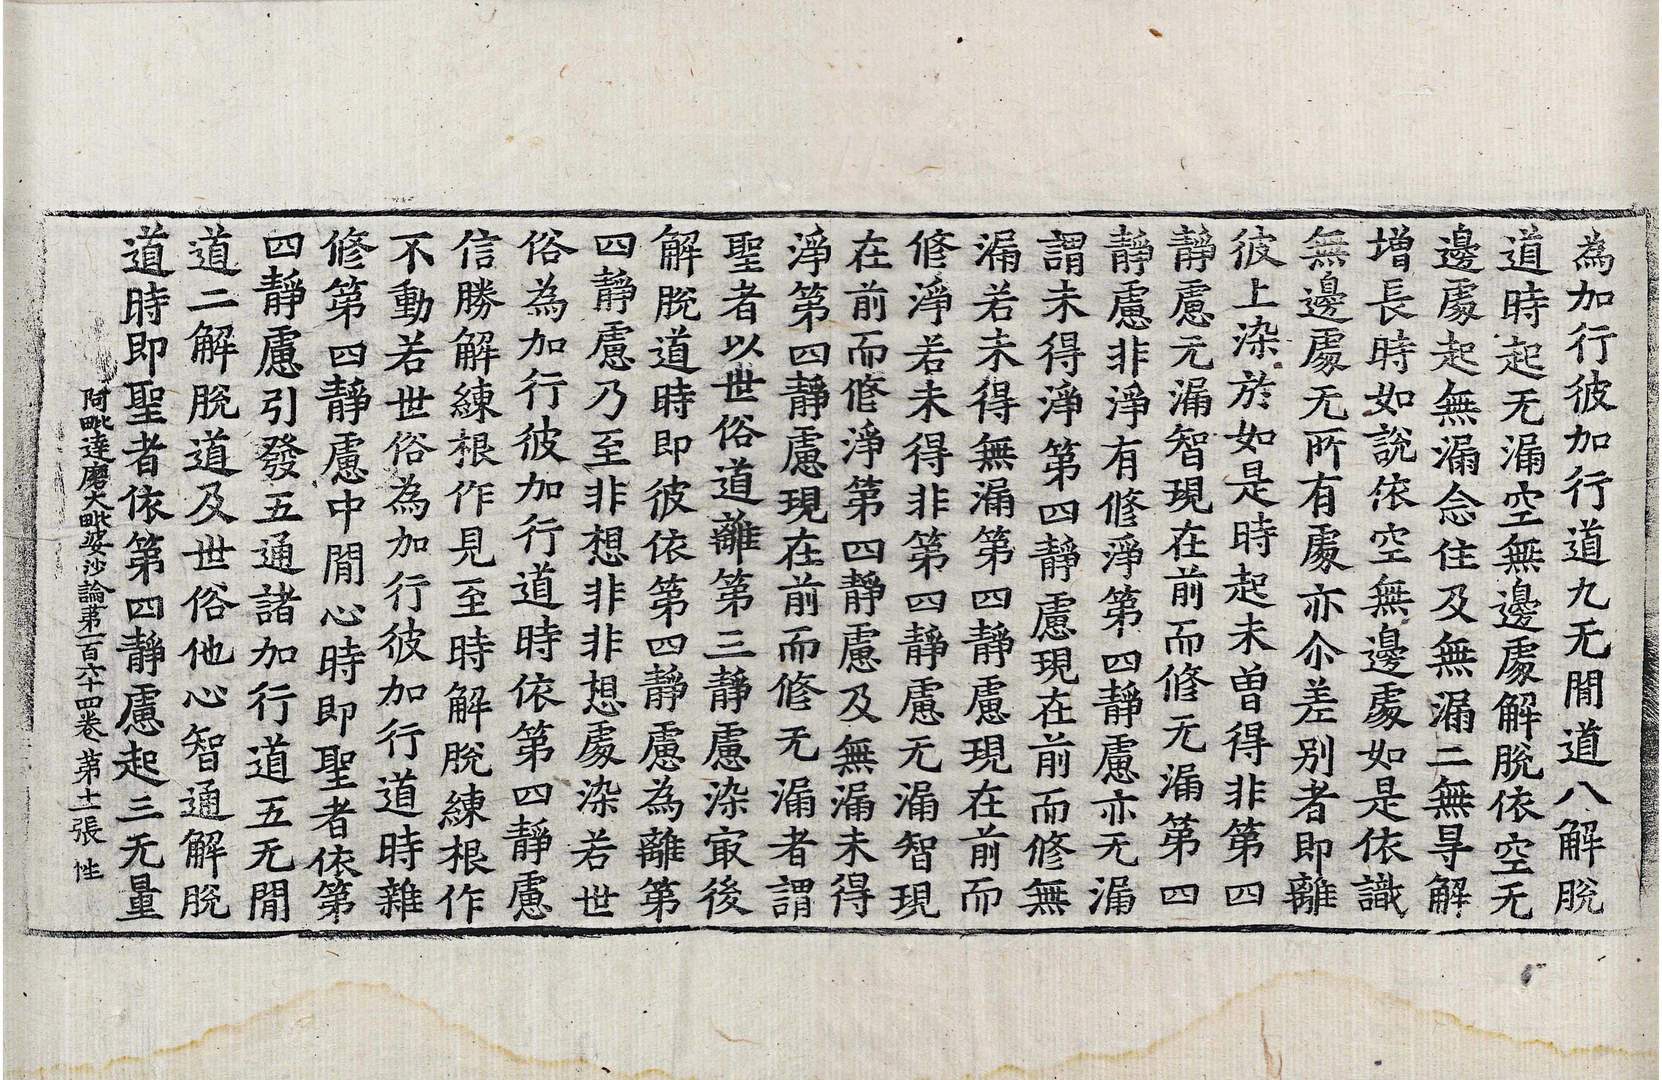 為加行彼加行道九无閒道八解脫
道時起无漏空無邊處解脫依空无
邊處起無漏念住及無漏二無㝵解
增長時如說依空無邊處如是依識
無邊處无所有處亦尒差别者即離
彼上染於如是時起未曾得非第四
靜慮无漏智現在前而修无漏第四
靜慮非淨有修淨第四靜慮亦无漏
謂未得淨第四靜慮現在前而修無
漏若未得無漏第四靜慮現在前而
修淨若未得非第四靜慮无漏智現
在前而修淨第四靜慮及無漏未得
淨第四靜慮現在前而修无漏者謂
聖者以世俗道離第三靜慮染㝡後
解脫道時即彼依第四靜慮為離第
四靜慮乃至非想非非想處染若世
俗為加行彼加行道時依第四靜慮
信勝解練根作見至時解脫練根作
不動若世俗為加行彼加行道時雜
修第四靜慮中閒心時即聖者依第
四靜慮引發五通諸加行道五无閒
道二解脫道及世俗他心智通解脫
道時即聖者依第四靜慮起三无量
阿毗達磨大毗婆沙論苐一百六十四卷 苐十二張 性